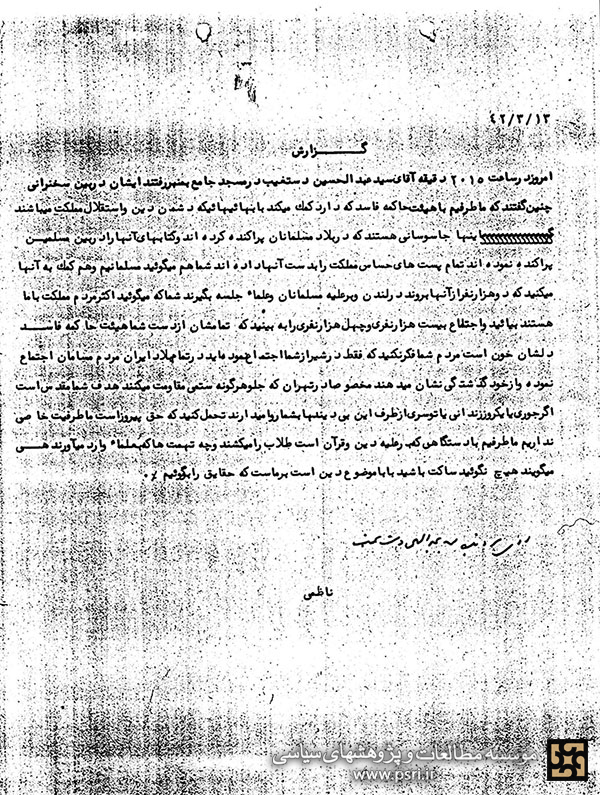 ۴۲/۳/۱۳
گـــزارش
امروز در ساعت ۲۰۱۵ دقیقه آقای سید عبدالحسین دستغیب در مسجد جامع بمنبر رفتند ایشان در بین سخنرانی
چنین گفتند که ما طرفیم با هیئت حاکمه فاسد که دارد کمک میکند با بهائیهائیکه دشمن دین و استقلال مملکت میباشند
اینها جاسوسانی هستند که در بلاد مسلمانان پراکنده کرده اند و کتابهای آنها را در بین مسلمین
پراکنده نموده اند تمام پست های حساس مملکت را بدست آنها داده اند شما هم میگوئید مسلمانیم و هم کمک به آنها
میکنید که دو هزار نفر از آنها بروند در لندن و بر علیه مسلمانان و علماء جلسه بگیرند شما که میگوئید اکثر مردم مملکت با ما
هستند بیائید و اجتماع بیست هزار نفری و چهل هزار نفری را به بینید که تمامشان از دست شما هیئت حاکمه فاسد
دلشان خون است مردم شما فکر نکنید که فقط در شیراز شما اجتماع نموده اید در تمام بلاد ایران مردم مسلمان اجتماع
نموده و از خود گذشتگی نشان میدهند مخصوصا در تهران که جلو هر گونه ستمی مقاومت میکنند هدف شما مقدس است
اگر جوری یا یکروز زندانی یا توسری از طرف این بی دینها بشما روا میدارند تحمل کنید که حق پیروز است ما طرفیت خاصی
نداریم ما طرفیم با دستگاهی که بر علیه دین و قرآن است طلاب را میکشند و چه تهمت ها که بعلماء وارد میآورند هـی
میگویند هیچ نگوئید ساکت باشید بابا موضوع دین است بر ماست که حقایق را بگوئیم ./.
ناظمی
موسسه مطالعات و پژوهشهای سیاسی
www.psri.ir